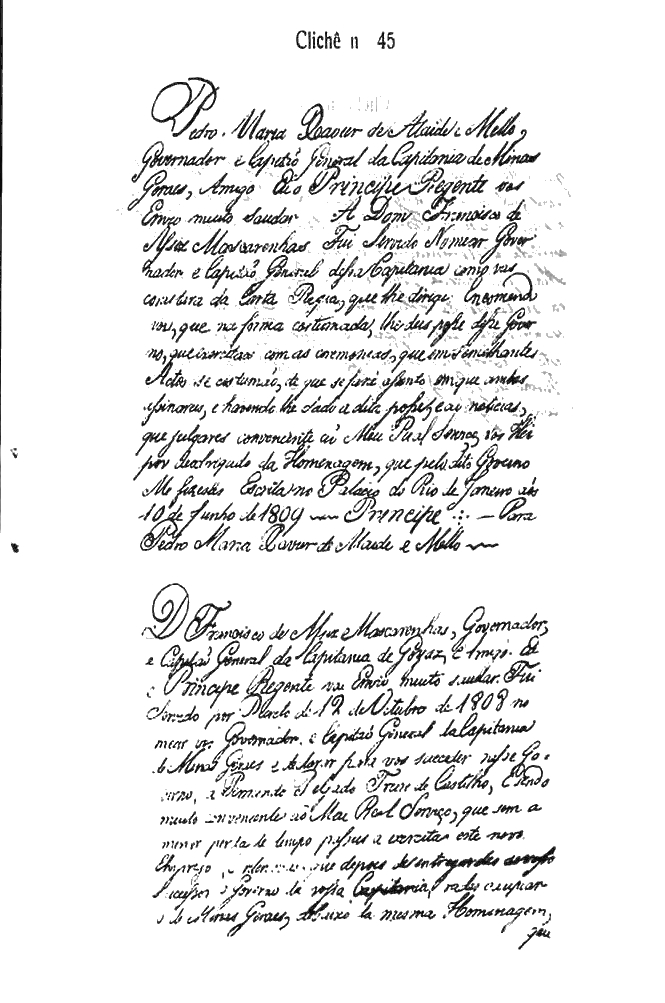 Clichê n 45
Pedro Maria Xavier de Ataide e Mello,
Governador e Capitaõ General da Capitania de Minas
Geraes, Amigo Eu o Principe Regente vos
Envio muito Saudar A Dom Francisco de
Assiz Mascarenhas Fui Servido Nomear Gover
nador e Capitaõ General dessa Capitania como vos
constara da Carta Regia, que lhe dirigi Encomendo
vos, que na forma costumada, lhe deis posse desse Gover
no, que exercitara com as ceremonias, que em Semelhantes
Actos se costumaõ, de que se fará assento em que ambos
assinareis, e havendo lhe dado a dita posse, e as noticias,
que julgares conveniente ao Meu Real Serviço, vos Hei
por desobrigado da Homenagem, que pelo dito Governo
Me fizestes Escrita no Palacio do Rio de Janeiro aos
10 de Junho de 1809 — Principe — Para
Pedro Maria Xavier de Ataide e Mello —
D Francisco de Assiz e Mascarenhas, Governador,
e Capitaõ General da Capitania de Goyaz, Amigo. Eu
o Principe Regente vos Envio muito saudar. Fui
Servido por Decreto de 12 de Outubro de 1808 no
mear vos Governador, e Capitaõ General da Capitania
de Minas Geraes e para vos succeder nesse Go
verno, a Fernando Delgado Freire de Castilho, E sendo
muito conveniente ao Meu Real Serviço, que sem a
menor perda de tempo passeis a exercitar este novo
Emprego, que depois de entregardes ao vosso
Successor o Governo da vossa Capitania, vades occupar
o de Minas Geraes, debaixo da mesma Homenagem,
que